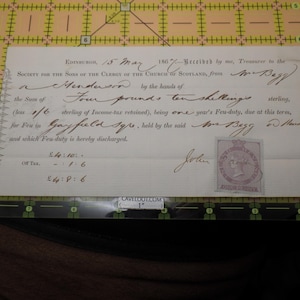 EDINBURGH, 15 May 1867 Received by me, Treasurer to the
SOCIETY FOR THE SONS OF THE CLERGY OF THE CHURCH OF SCOTLAND, from Mr Begg
& Henderson by the hands of
the Sum of Four pounds ten shillings sterling,
(less 1/6 sterling of Income-tax retained), being one year's Feu-duty, due at this term,
for Feu in Gayfield Sqre, held by the said Mr Begg
and which Feu-duty is hereby discharged.
£4.10.-
Off Tax, -.1.6
£4.8.6
John